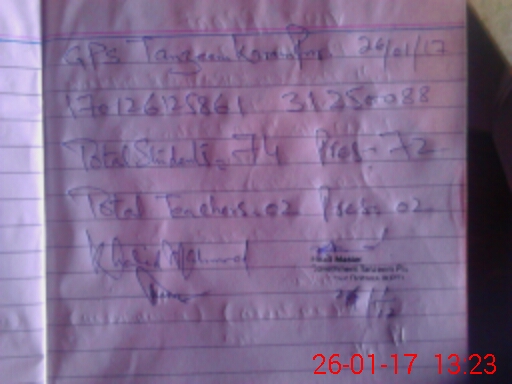 GPS Tanzeem Karimpur 26/01/17
170126125861 31250088
Total Students. 74 Pres. 72
Total Teachers. 02 Pres. 02
Khalid Mahmood
Head Master
26-01-17 13:23